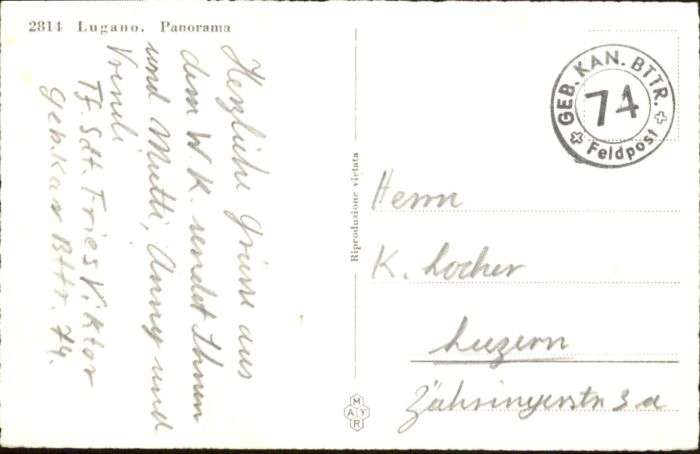 2814 Lugano. Panorama
Herzliche Grüsse aus
dem W.K. sendet Ihnen
und Mutti, Anny und
Vreneli
Tf. Sdt. Fries Viktor
Geb. Kan Bttr. 74.
Riproduzione vietata
MAYR
GEB. KAN. BTTR.
74
Feldpost
Herrn
K. Locher
Luzern
Zähringerstr 3a